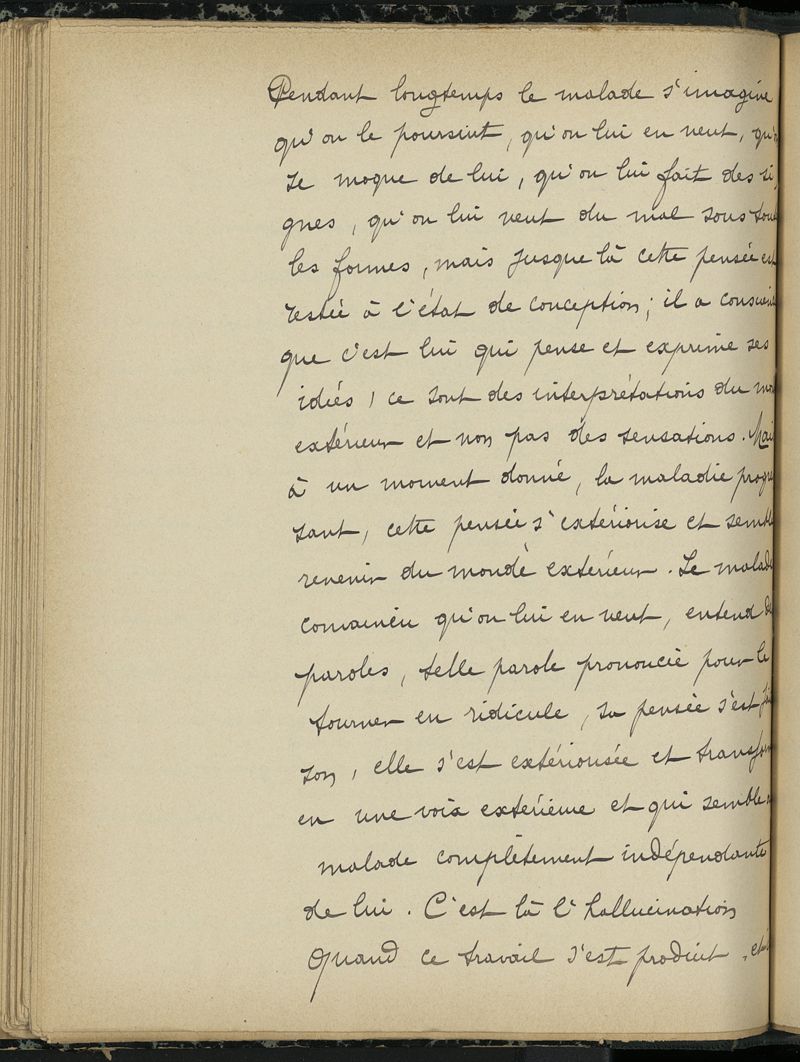 Pendant longtemps le malade s'imagine
qu'on le poursuit, qu'on lui en veut, qu'
se moque de lui, qu'on lui fait des si,
gnes, qu'on lui veut du mal sous tou
les formes, mais jusque là cette pensée es
restée à l'état de conception; il a conscien
que c'est lui qui pense et exprime ses
idées, ce sont des interprétations du mon
extérieur et non pas des sensations. Mai
à un moment donné, la maladie progre
sant, cette pensée s'extériorise et semble
revenir du monde extérieur. Le malade
convaincu qu'on lui en veut, entend de
paroles, telle parole prononcée pour le
tourner en ridicule, sa pensée s'est fai
son, elle s'est extériorisée et transform
en une voix extérieure et qui semble a
malade complètement indépendante
de lui. C'est là l'hallucination
Quand ce travail s'est produit, et